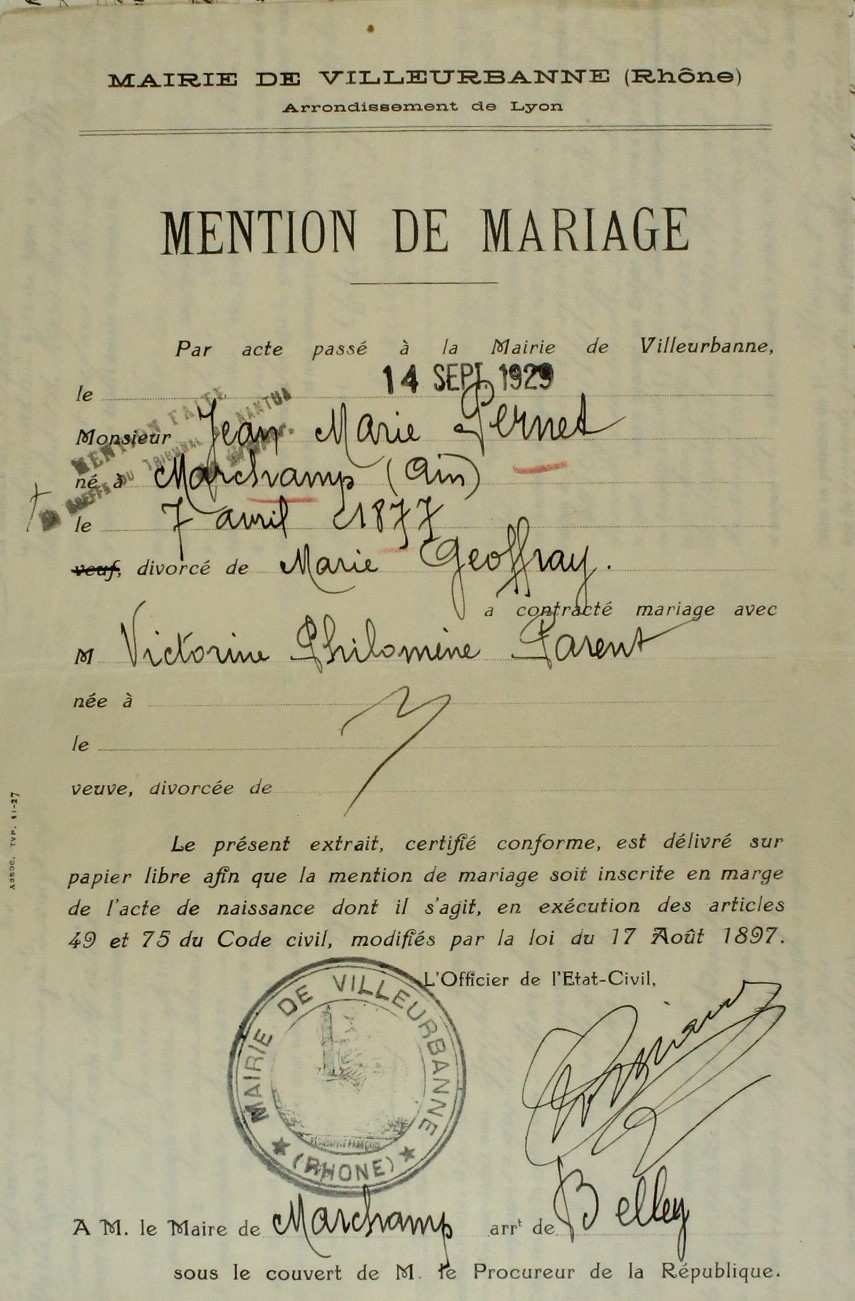 MAIRIE DE VILLEURBANNE (Rhône)
Arrondissement de Lyon
MENTION DE MARIAGE
Par acte passé à la Mairie de Villeurbanne,
le 14 SEPT. 1929
MENTION FAITE
AU GREFFE DU TRIBUNAL DE NANTUA
Monsieur Jean Marie Pernet
né à Marchamp (Ain)
le 7 avril 1877
veuf, divorcé de Marie Geoffray.
a contracté mariage avec
M Victorine Philomène Parent
née à
le
veuve, divorcée de
Le présent extrait, certifié conforme, est délivré sur
papier libre afin que la mention de mariage soit inscrite en marge
de l'acte de naissance dont il s'agit, en exécution des articles
49 et 75 du Code civil, modifiés par la loi du 17 Août 1897.
L'Officier de l'Etat-Civil,
MAIRIE DE VILLEURBANNE
(RHONE)
A M. le Maire de Marchamp arrt de Belley
sous le couvert de M. le Procureur de la République.